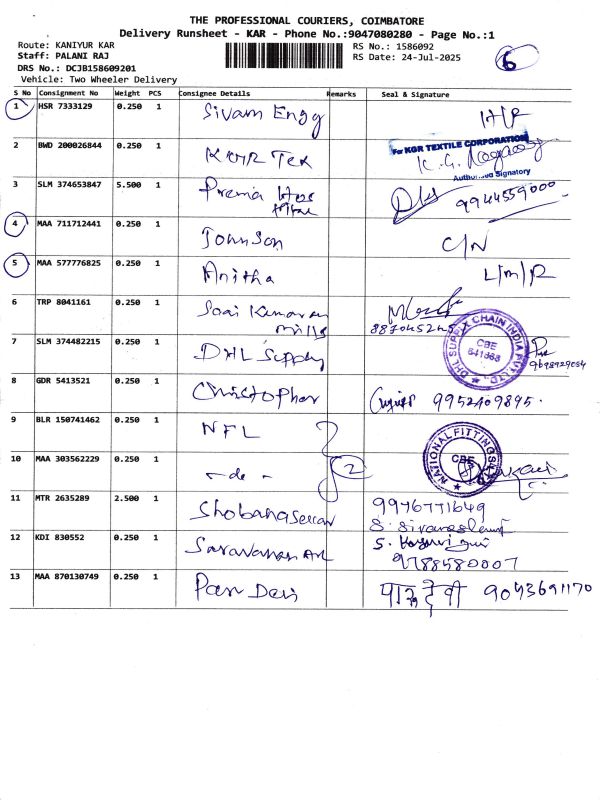 THE PROFESSIONAL COURIERS, COIMBATORE
Delivery Runsheet - KAR - Phone No.:9047080280 - Page No.:1
Route: KANIYUR KAR
RS No.: 1586092
6
Staff: PALANI RAJ
RS Date: 24-Jul-2025
DRS No.: DCJB158609201
Vehicle: Two Wheeler Delivery
S No Consignment No Weight PCS Consignee Details Remarks Seal & Signature
1 HSR 7333129 0.250 1 Sivam Engg
2 BWD 200026844 0.250 1 KGR Tex
For KGR TEXTILE CORPORATION
Authorised Signatory
3 SLM 374653847 5.500 1 Prema 9944559000
4 MAA 711712441 0.250 1 Johnson C/N
5 MAA 577776825 0.250 1 Anitha L/m/R
6 TRP 8041161 0.250 1 Soai Kumaran
mills
7 SLM 374482215 0.250 1 DHL Supply
DHL SUPPLY CHAIN INDIA PVT LTD
CBE
8 GDR 5413521 0.250 1 Christopher 9952409895.
9 BLR 150741462 0.250 1 NFL
NATIONAL FITTINGS
CBE
10 MAA 303562229 0.250 1 - do - 2
11 MTR 2635289 2.500 1 9976771649
12 KDI 830552 0.250 1 9788580007
13 MAA 870130749 0.250 1 Pan Devi 9043691170